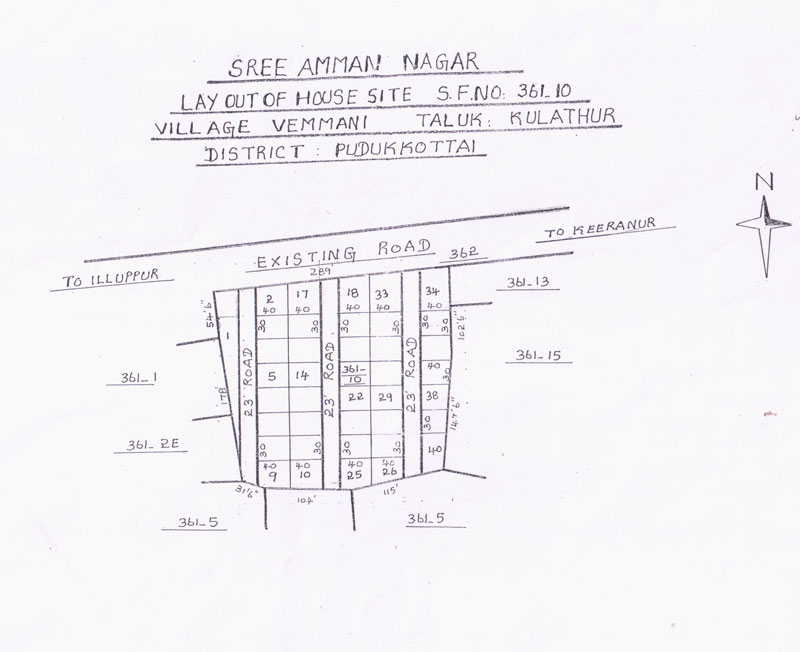 SREE AMMAN NAGAR
LAY OUT OF HOUSE SITE S.F.NO: 361-10
VILLAGE VEMMANI TALUK: KULATHUR
DISTRICT : PUDUKKOTTAI
N
TO ILLUPPUR
EXISTING ROAD
362
TO KEERANUR
289'
54'6"
2 17 18 33 34
40 40 40 40 40
361-13
30 30 30 30 30 30
102'6"
1
361-15
23' ROAD
23' ROAD
23' ROAD
361-1
5 14
361-10
40
30
178'
22 29 38
147'6"
30
361-2E
30 30 30 30
40
40 40 40 40
9 10 25 26
31'6"
104'
115'
361-5
361-5